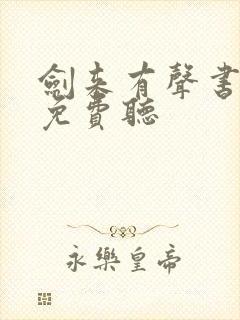 劍来有聲書
免費聽
永樂皇帝